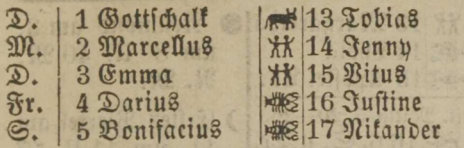 D. 1 Gottschalk 13 Tobias
M. 2 Marcellus 14 Jenny
D. 3 Emma 15 Vitus
Fr. 4 Darius 16 Justine
S. 5 Bonifacius 17 Nikander